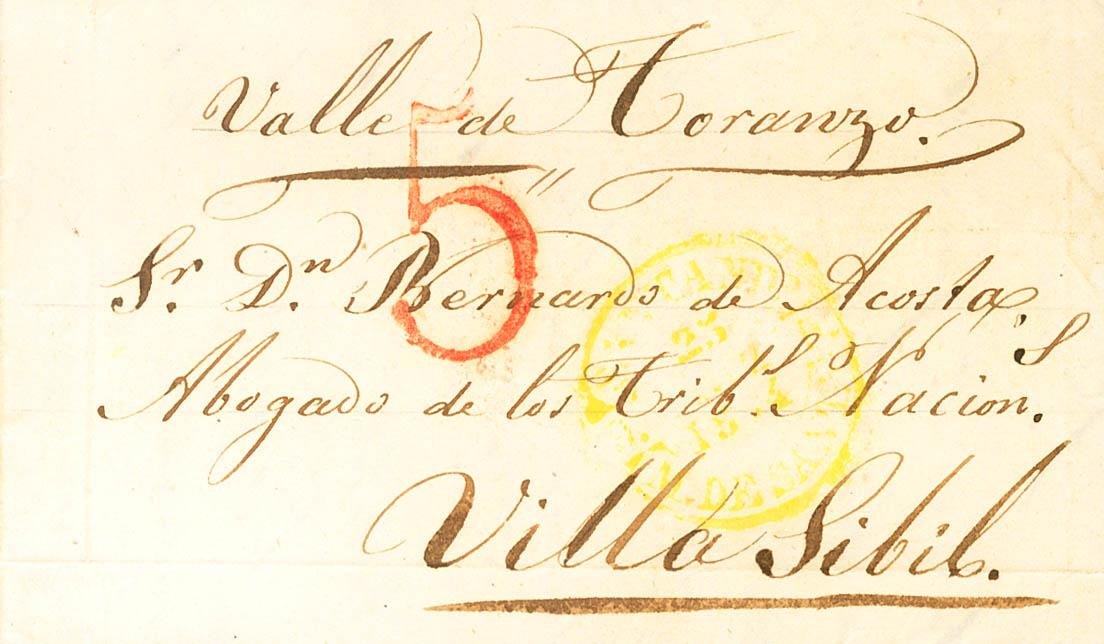 Valle de Toranzo.
5
Sr. Dn Bernardo de Acosta,
Abogado de los Tribs. Nacions.
Villa Sibil.
23